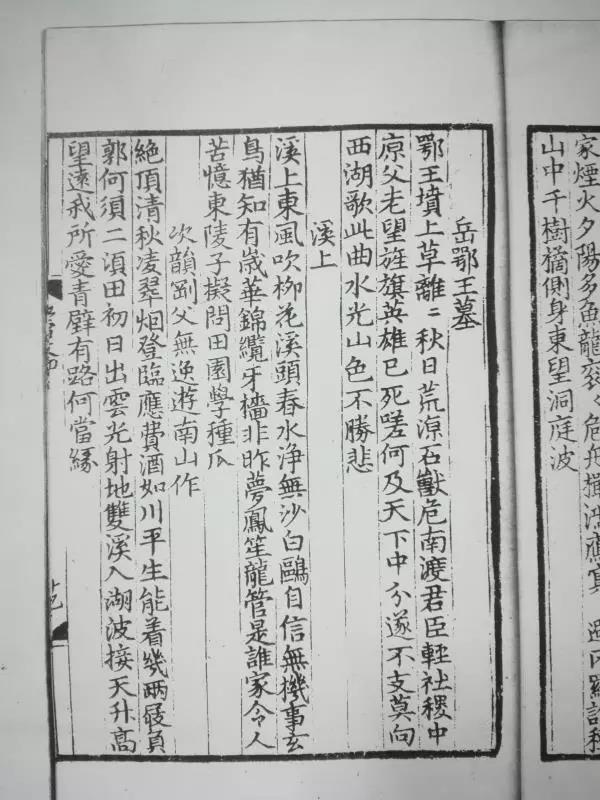 家煙火夕陽多魚龍袞〻危舟橫
山中千樹橘側身東望洞庭波
岳鄂王墓
鄂王墳上草離〻秋日荒凉石獸危南渡君臣輕社稷中
原父老望旌旗英雄已死嗟何及天下中分遂不支莫向
西湖歌此曲水光山色不勝悲
溪上
溪上東風吹柳花溪頭春水浄無沙白鷗自信無機事玄
鳥猶知有歲華錦纜牙檣非昨夢鳳笙龍管是誰家令人
苦憶東陵子擬問田園學種瓜
次韻剛父無逸遊南山作
絶頂清秋凌翠烟登臨應費酒如川平生能着幾兩屐負
郭何須二頃田初日出雲光射地雙溪入湖波接天升高
望遠我所愛青壁有路何當縁